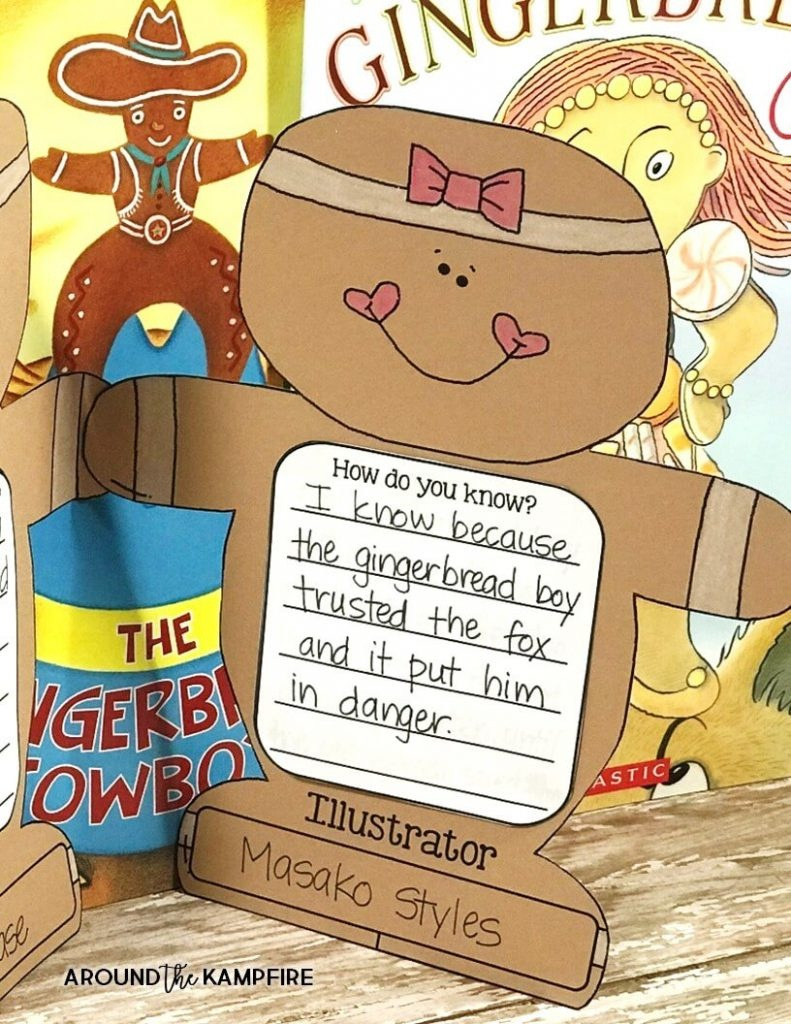 GINGERBREAD
How do you know?
I know because
the gingerbread boy
trusted the fox
and it put him
in danger.
THE
NGERBR
COWBO
ASTIC
Illustrator
Masako Styles
AROUND the KAMPFIRE